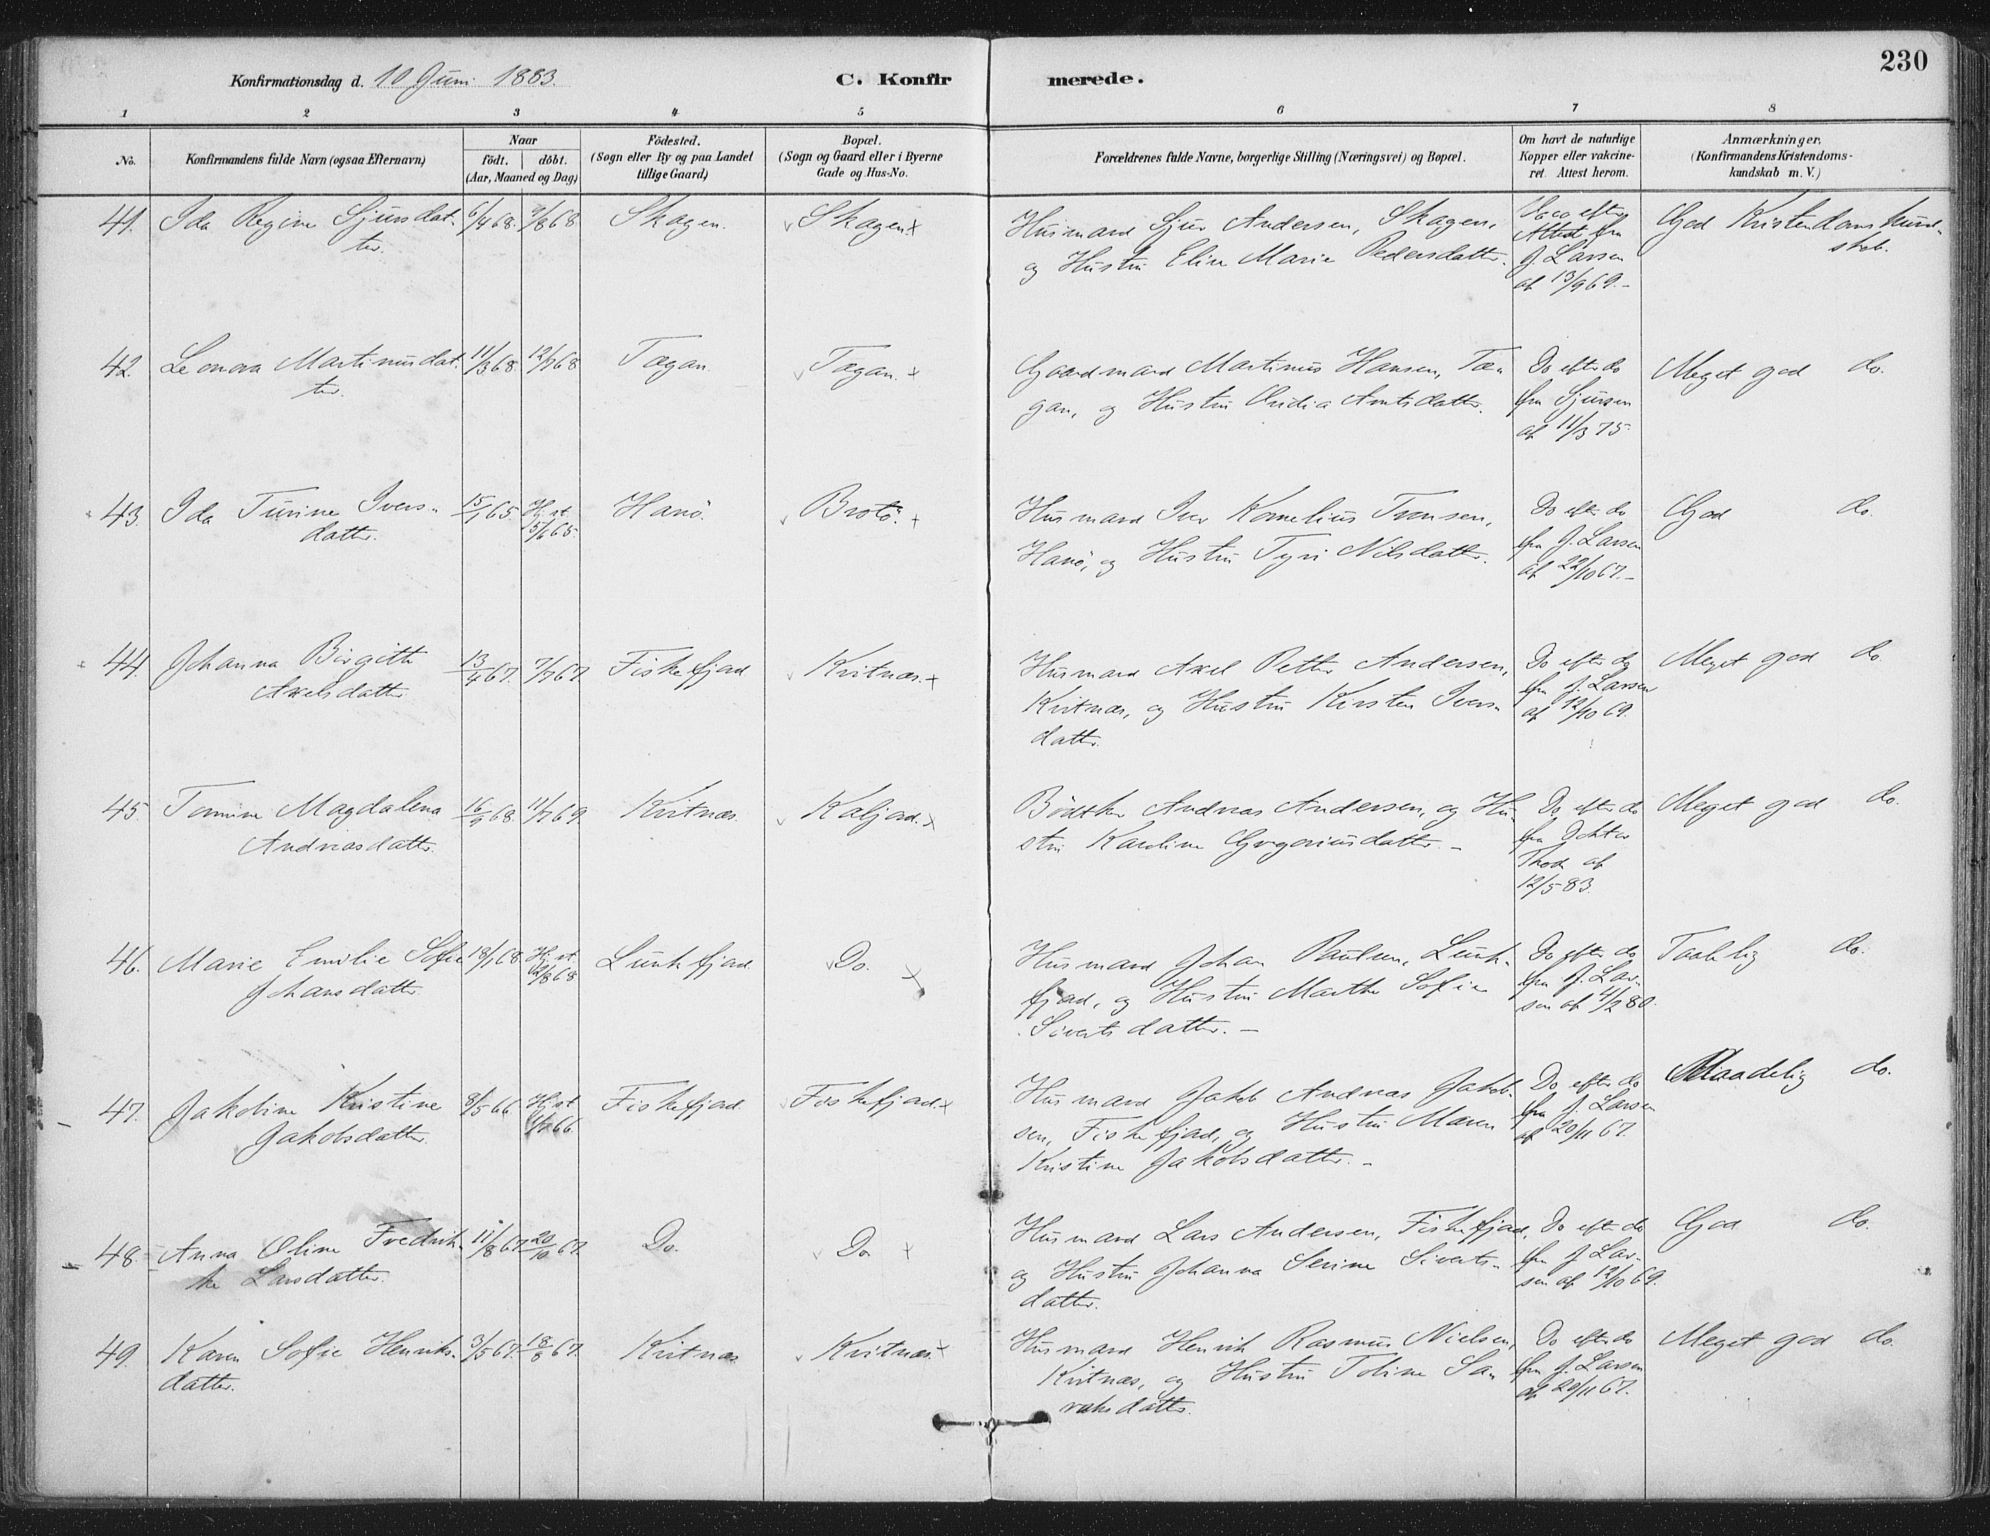 230
Konfirmationsdag d. 10 Juni 1883.
C. Konfirmerede.
1 2 3 4 5 6 7 8
No.
Konfirmandens fulde Navn (ogsaa Efternavn)
Naar
födt. döbt.
(Aar, Maaned og Dag)
Födested.
(Sogn eller By og paa Landet
tillige Gaard)
Bopæl.
(Sogn og Gaard eller i Byerne
Gade og Hus-No.
Forældrenes fulde Navne, borgerlige Stilling (Næringsvei) og Bopæl.
Om havt de naturlige
Kopper eller vakcine-
ret. Attest herom.
Anmærkninger.
(Konfirmandens Kristendoms-
kundskab m. V.)
41. Ida Regine Sjursdat-
ter.
6/4 68. 9/8 68 Skagen. Skagen.
Husmand Sjur Andersen, Skagen,
og Hustru Eline Marie Pedersdatter.
Vacc efter
Attest fra
J. Larsen
af 13/9 69.-
God Kristendomskund-
skab.
42. Leonora Martinusdat-
ter.
11/3 68. 12/7 68 Tægan. Tægan.
Gaardmand Martinus Hansen, Tæ-
gan, og Hustru Andia Arntsdatter.
Do efter do
fra Sjursen
af 11/3 75.
Meget god do.
43. Ida Turine Ivers-
datter.
15/1 65. Hj. st. 15/6 65. Hanö. Brotö.
Husmand Iver Kornelius Tronsen,
Hanö, og Hustru Tyri Nilsdatter.
Do efter do
fra J. Larsen
af 22/10 67.-
God do.
44. Johanna Birgitte
Axelsdatter
13/4 67. 7/7 67. Fiskefjord Kvitnæs.
Husmand Axel Petter Andersen,
Kvitnæs, og Hustru Kirsten Ivers-
datter.
Do efter do
fra J. Larsen
af 12/10 69.
Meget god do.
45 Tomine Magdalena
Andreasdatter.
16/9 68. 11/7 69. Kvitnæs. Kaljord.
Bödtker Andreas Andersen, og Hu-
stru Karoline Gregoriusdatter.-
Do efter do
fra Doktor
Thode af
12/5 83.
Meget god do.
46. Marie Emilie Sofie
Johansdatter.
18/1 68. Hj. st. Lunkfjord. Do.
Husmand Johan Paulsen, Lunk-
fjord, og Hustru Marthe Sofie
Sivertsdatter.-
Do efter do
fra J. Lar-
sen af 4/2 80.
Taalelig do.
47. Jakobine Kristine
Jakobsdatter.
8/5 66. Hj. st. Fiskefjord. Fiskefjord.
Husmand Jakob Andreas Jakob-
sen, Fiskefjord, og Hustru Maren
Kristine Jakobsdatter.-
Do efter do
fra J. Larsen
af 20/11 67.
Maadelig do.
48. Anna Oline Fredrik-
ke Larsdatter.
11/8 67. 20/10 67. Do. Do
Husmand Lars Andersen, Fiskefjord,
og Hustru Johanna Serine Siverts-
datter.
Do efter do
fra J. Lar-
sen af 12/10 69.
God do.
49. Karen Sofie Henriks-
datter.
3/5 67. 18/8 67. Kvitnæs Kvitnæs.
Husmand Henrik Rasmus Nielsen,
Kvitnæs, og Hustru Toline Za-
riasdatter.
Do efter do
fra J. Larsen
af 20/11 67.
Meget god do.